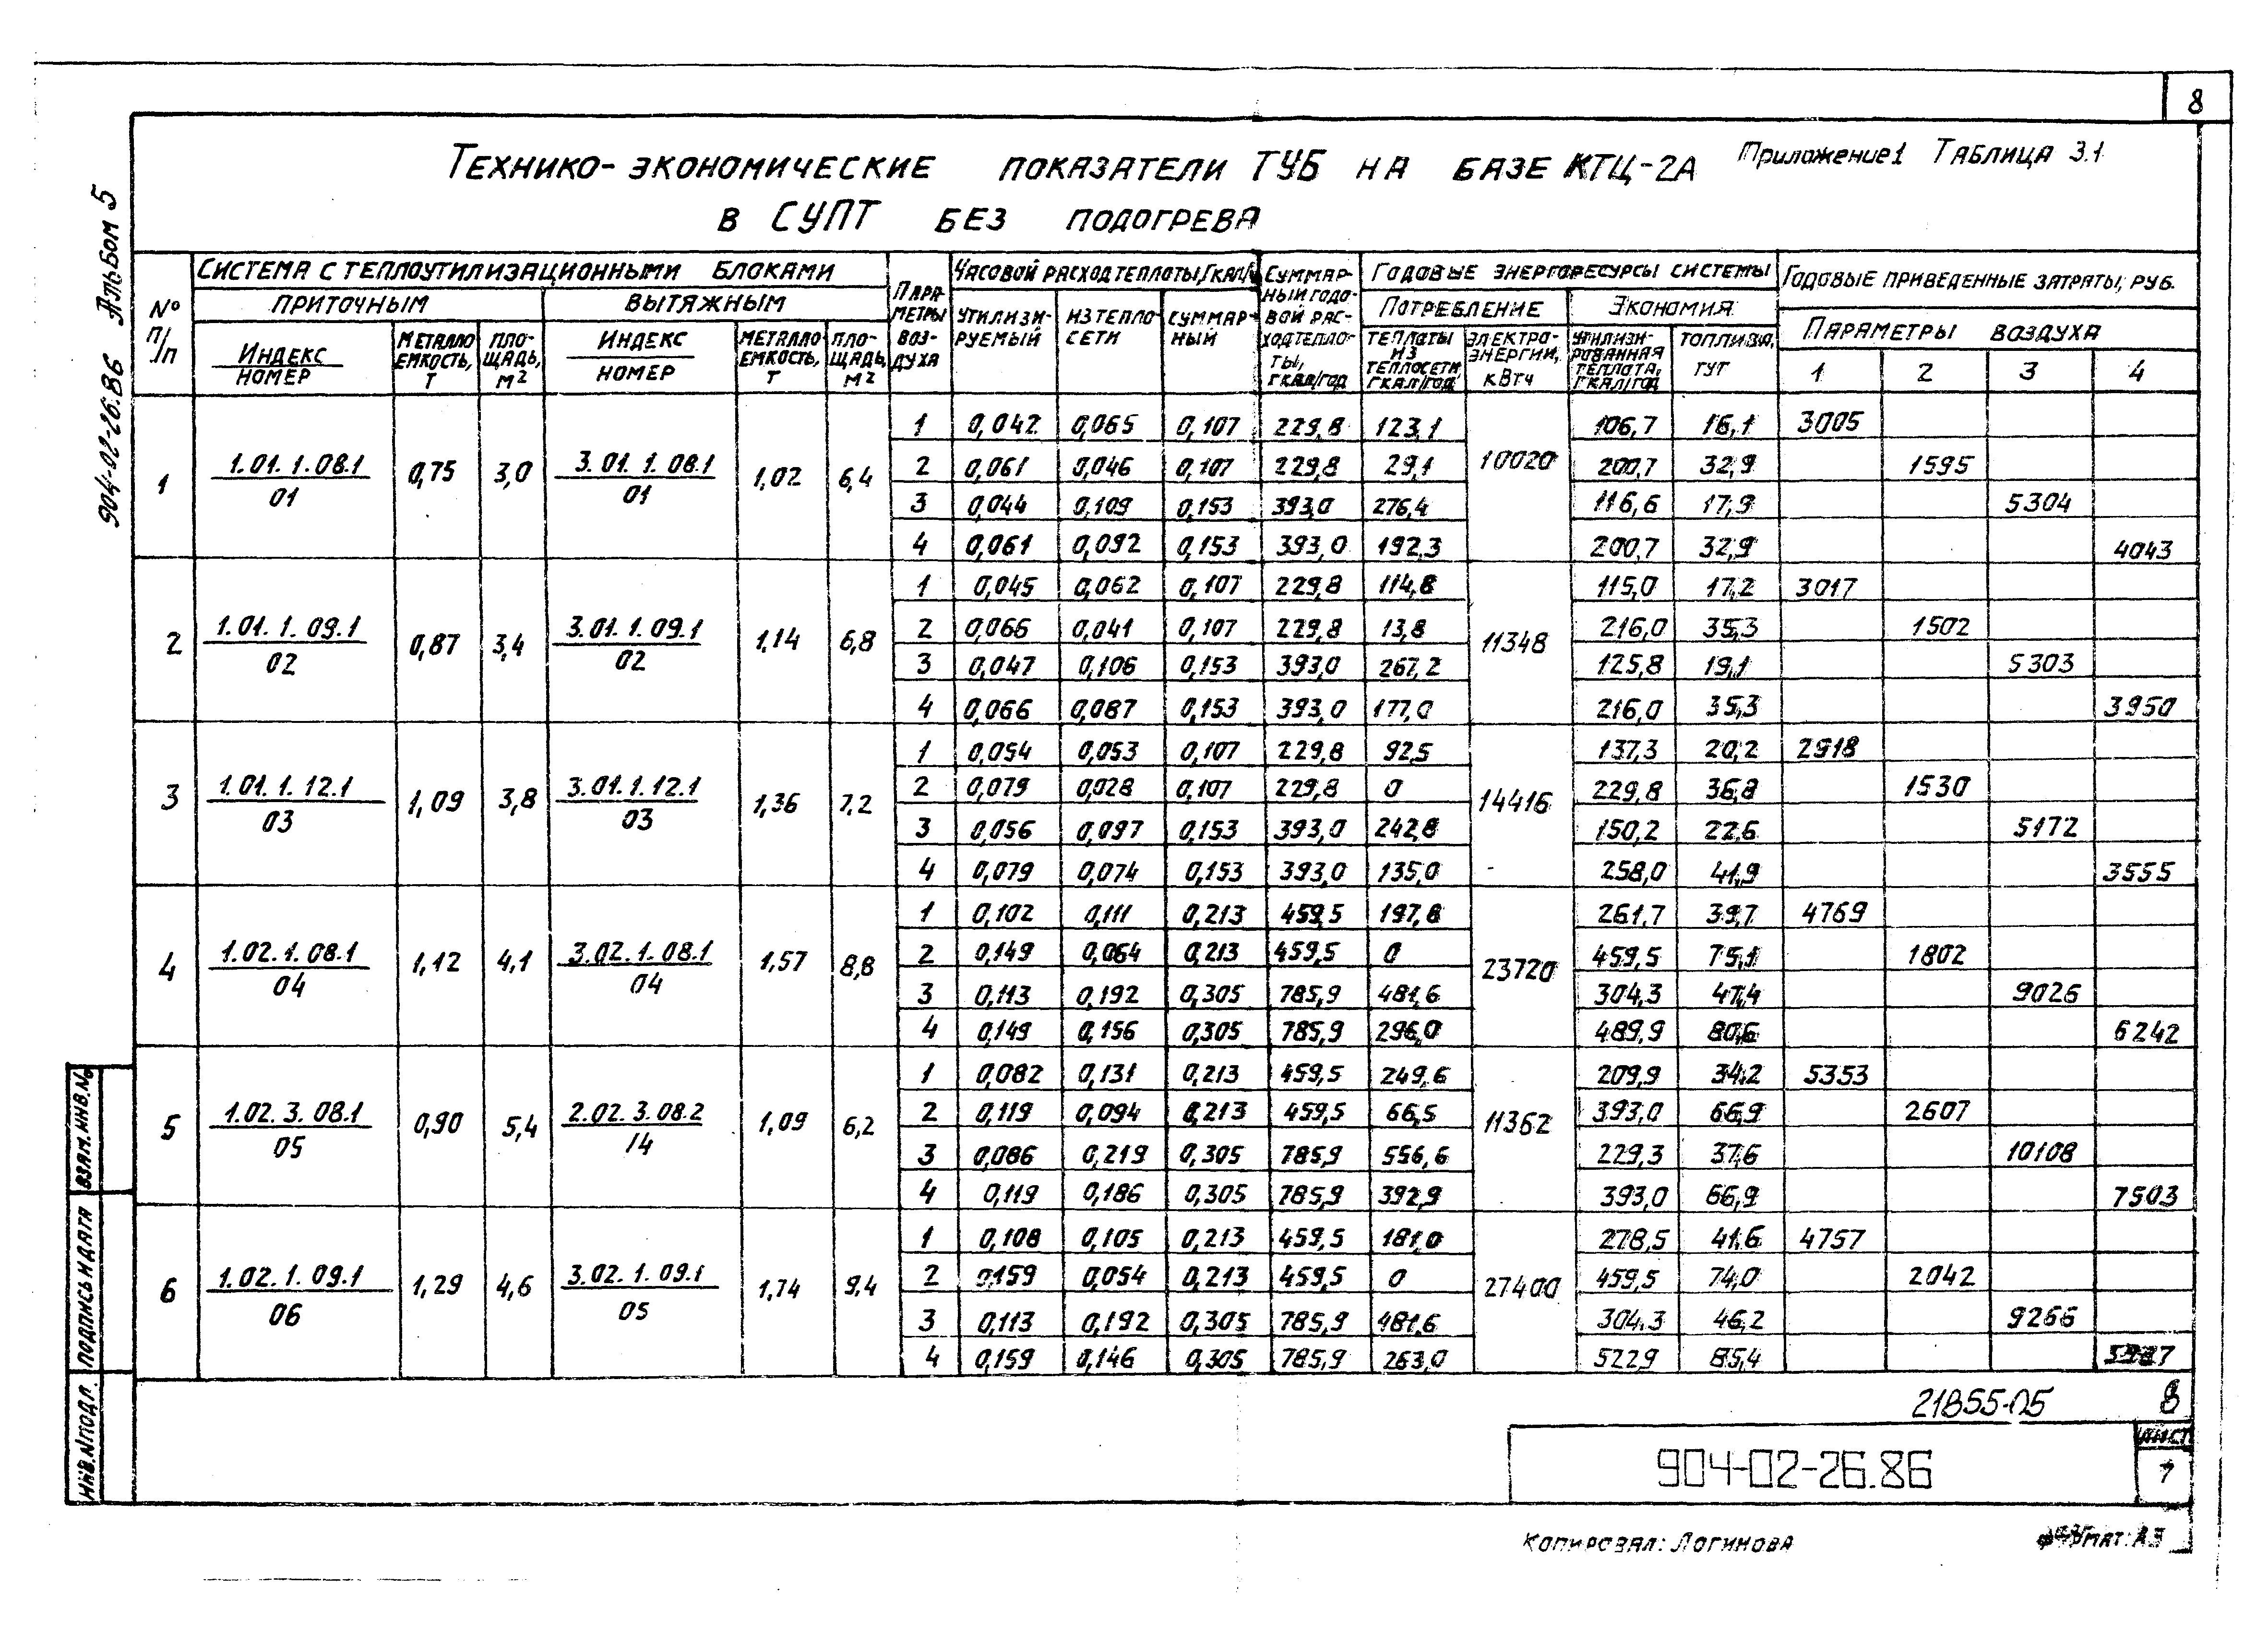 8
Технико-экономические показатели ТУБ на базе КТЦ-2А Приложение 1 Таблица 3.1
в СУПТ без подогрева
904-02-26.86 Альбом 5
№ п/п
Система с теплоутилизационными блоками
приточным
вытяжным
Индекс номер
Металлоемкость, т
Площадь, м²
Индекс номер
Металлоемкость, т
Площадь, м²
Параметры воздуха
Часовой расход теплоты, Гкал/ч
Утилизируемый
Из теплосети
Суммарный
Суммарный годовой расход теплоты, Гкал/год
Годовые энергоресурсы системы
Потребление
Экономия
Теплоты из теплосети Гкал/год
Электроэнергии, кВтч
Утилизированная теплота, Гкал/год
Топлива, тут
Годовые приведенные затраты, руб.
Параметры воздуха
1 2 3 4
1 1.01.1.08.1/01 0,75 3,0 3.01.1.08.1/01 1,02 6,4 10020
1 0,042 0,065 0,107 229,8 123,1 106,7 16,1 3005
2 0,061 0,046 0,107 229,8 29,1 200,7 32,9 1595
3 0,044 0,109 0,153 393,0 276,4 116,6 17,9 5304
4 0,061 0,092 0,153 393,0 192,3 200,7 32,9 4043
2 1.01.1.09.1/02 0,87 3,4 3.01.1.09.1/02 1,14 6,8 11348
1 0,045 0,062 0,107 229,8 114,8 115,0 17,2 3017
2 0,066 0,041 0,107 229,8 13,8 216,0 35,3 1502
3 0,047 0,106 0,153 393,0 267,2 125,8 19,1 5303
4 0,066 0,087 0,153 393,0 177,0 216,0 35,3 3950
3 1.01.1.12.1/03 1,09 3,8 3.01.1.12.1/03 1,36 7,2 14416
1 0,054 0,053 0,107 229,8 92,5 137,3 20,2 2918
2 0,079 0,028 0,107 229,8 0 229,8 36,8 1530
3 0,056 0,097 0,153 393,0 242,8 150,2 22,6 5172
4 0,079 0,074 0,153 393,0 135,0 258,0 41,9 3555
4 1.02.1.08.1/04 1,12 4,1 3.02.1.08.1/04 1,57 8,8 23720
1 0,102 0,111 0,213 459,5 197,8 261,7 39,7 4769
2 0,149 0,064 0,213 459,5 0 459,5 75,1 1802
3 0,113 0,192 0,305 785,9 481,6 304,3 47,4 9026
4 0,149 0,156 0,305 785,9 296,0 489,9 80,6 6242
5 1.02.3.08.1/05 0,90 5,4 2.02.3.08.2/14 1,09 6,2 11362
1 0,082 0,131 0,213 459,5 249,6 209,9 34,2 5353
2 0,119 0,094 0,213 459,5 66,5 393,0 66,9 2607
3 0,086 0,219 0,305 785,9 556,6 229,3 37,6 10108
4 0,119 0,186 0,305 785,9 392,9 393,0 66,9 7503
6 1.02.1.09.1/06 1,29 4,6 3.02.1.09.1/05 1,74 9,4 27400
1 0,108 0,105 0,213 459,5 181,0 278,5 41,6 4757
2 0,159 0,054 0,213 459,5 0 459,5 74,0 2042
3 0,113 0,192 0,305 785,9 481,6 304,3 46,2 9266
4 0,159 0,146 0,305 785,9 263,0 522,9 85,4
Взам.инв.№
Подпись и дата
Инв.№подл.
21855-05 8
904-02-26.86
Лист
7
Копировал: Логинова Формат: А3